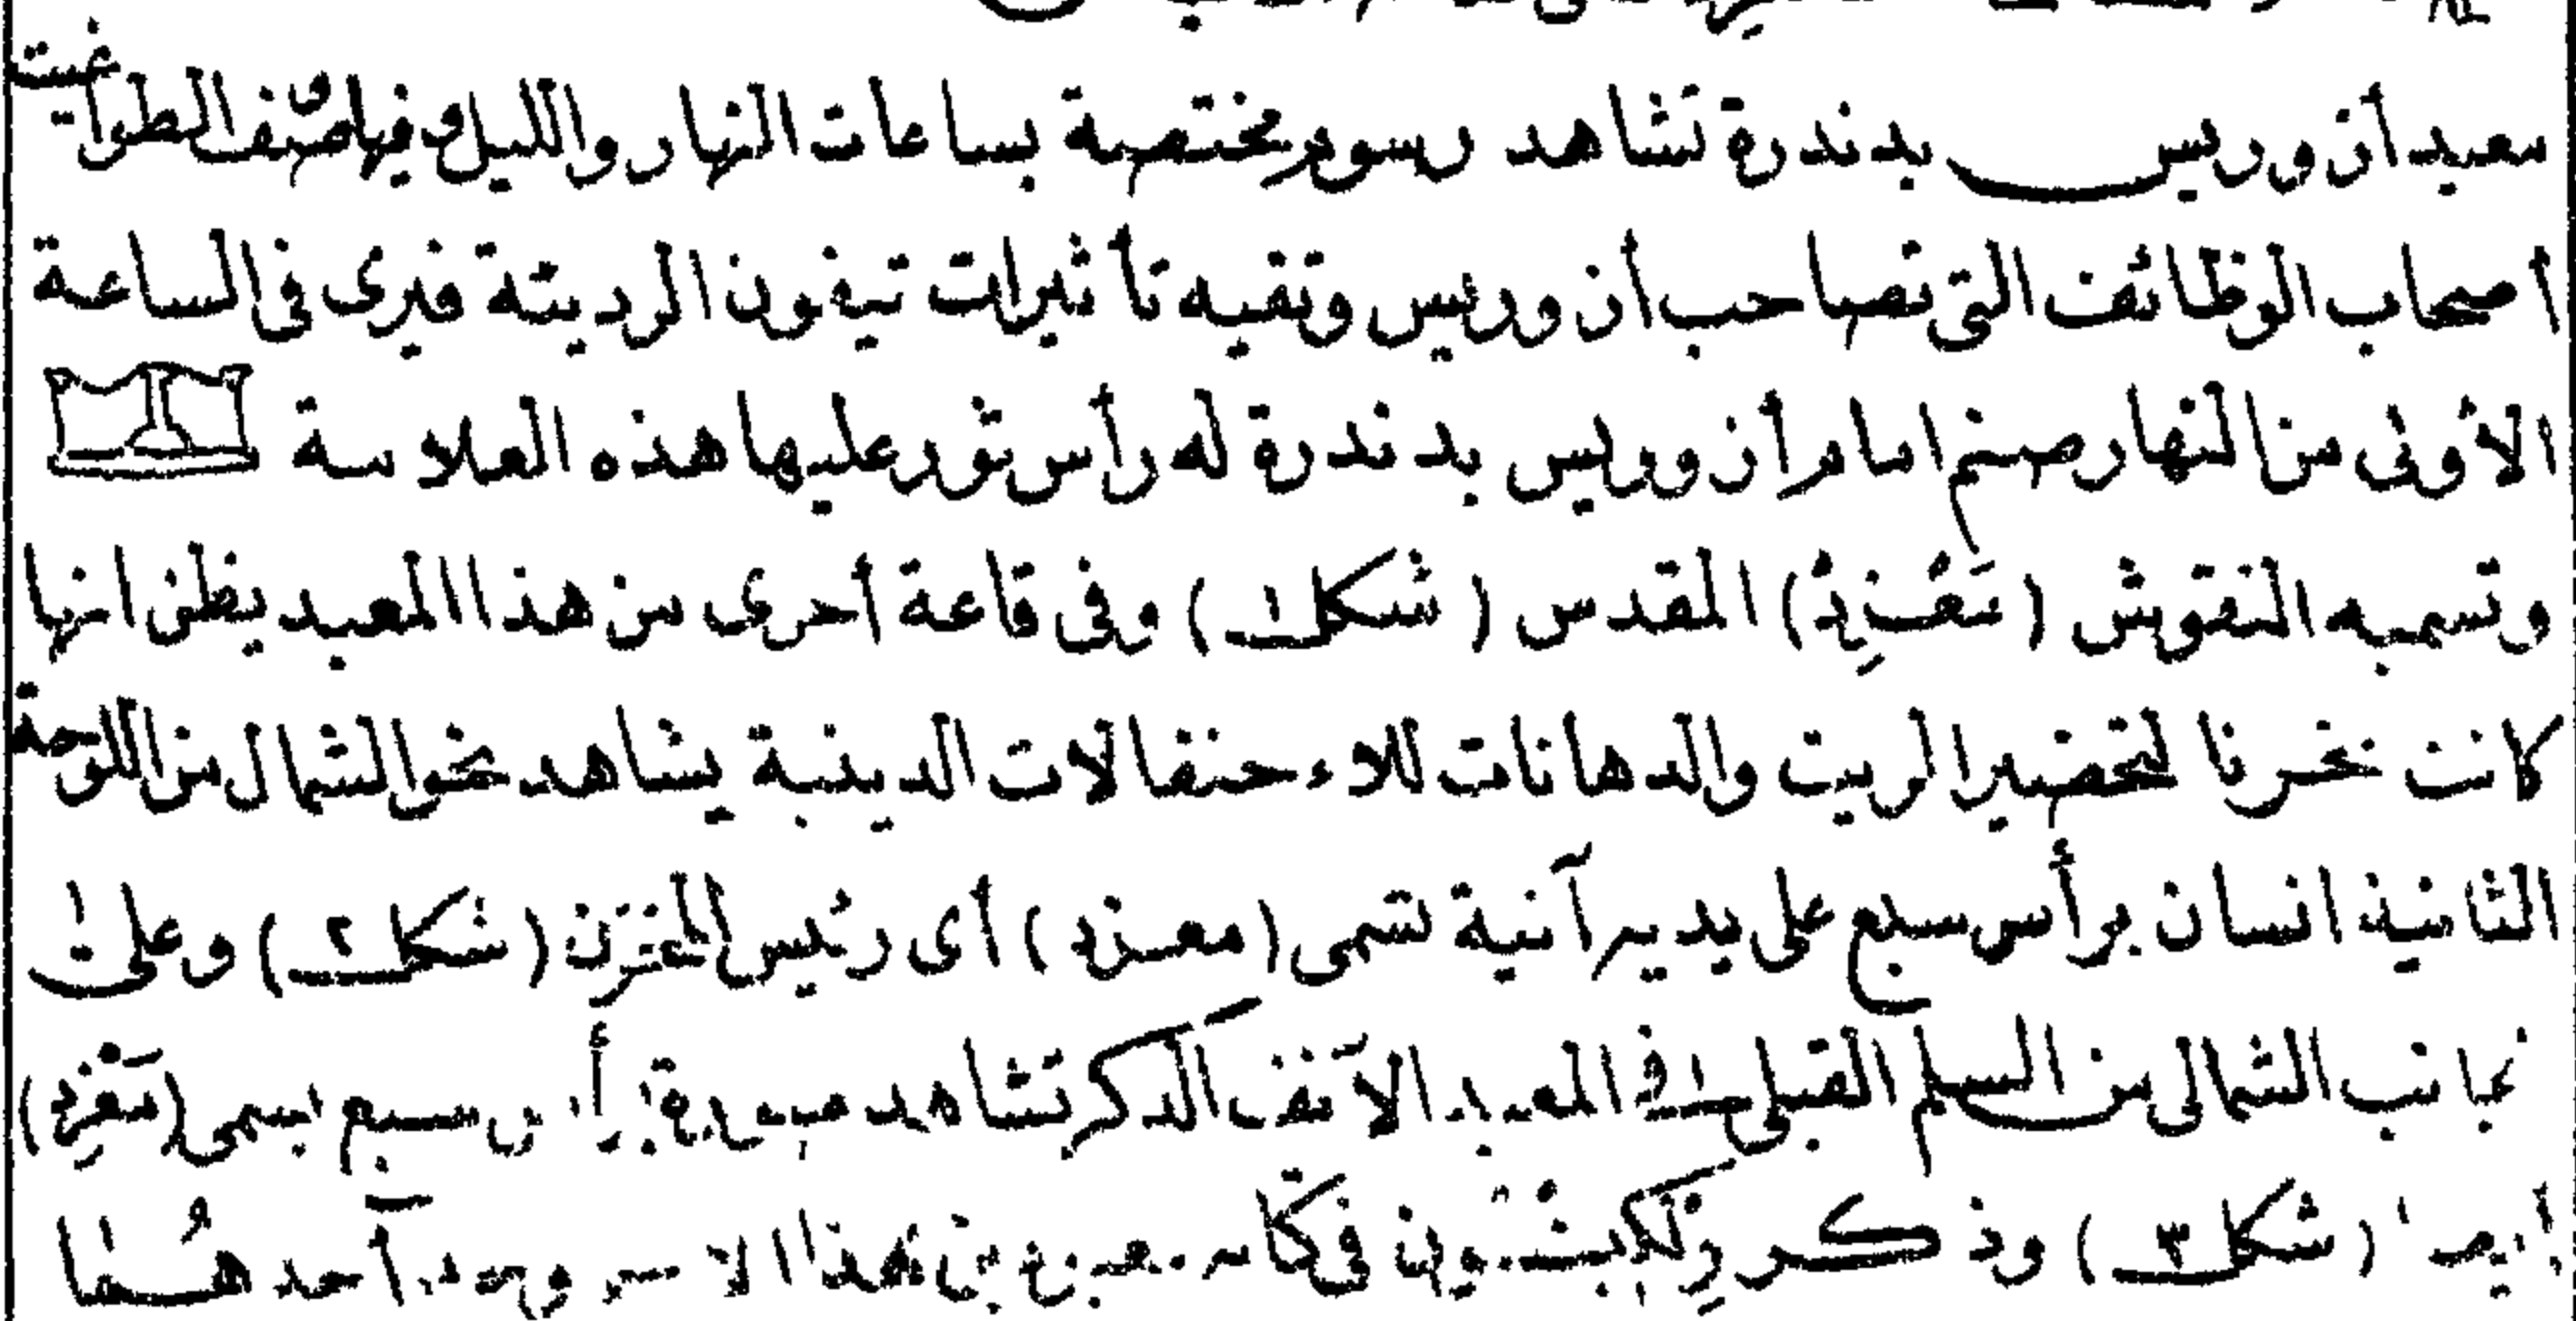 معبد أزوريس بدندرة تشاهد رسوم مختصة بساعات النهار والليل وفيها صنف الطواغيت
أصحاب الوظائف التى تصاحب أزوريس وتقيه تأثيرات تيفون الرديئة فيرى فى الساعة
الأولى من النهار صنم امام أزوريس بدندرة له رأس ثور عليها هذه العلامة
وتسميه النقوش المقدس (شكل ١) وفى قاعة أخرى من هذا المعبد يظن انها
كانت مخزنا لتحضير الزيت والدهانات للاحتفالات الدينية يشاهد نحو الشمال من اللوحة
الثانية انسان برأس سبع على يديه آنية تسمى (معزد) أى رئيس المخزن (شكل ٢) وعلى
جانب الشمالى من السلم القبلى فى المعبد الآنف الذكر تشاهد صورة برأس سبع يسمى
أيضا (شكل ٣) وذكر فى هذا الاسم أحدهما